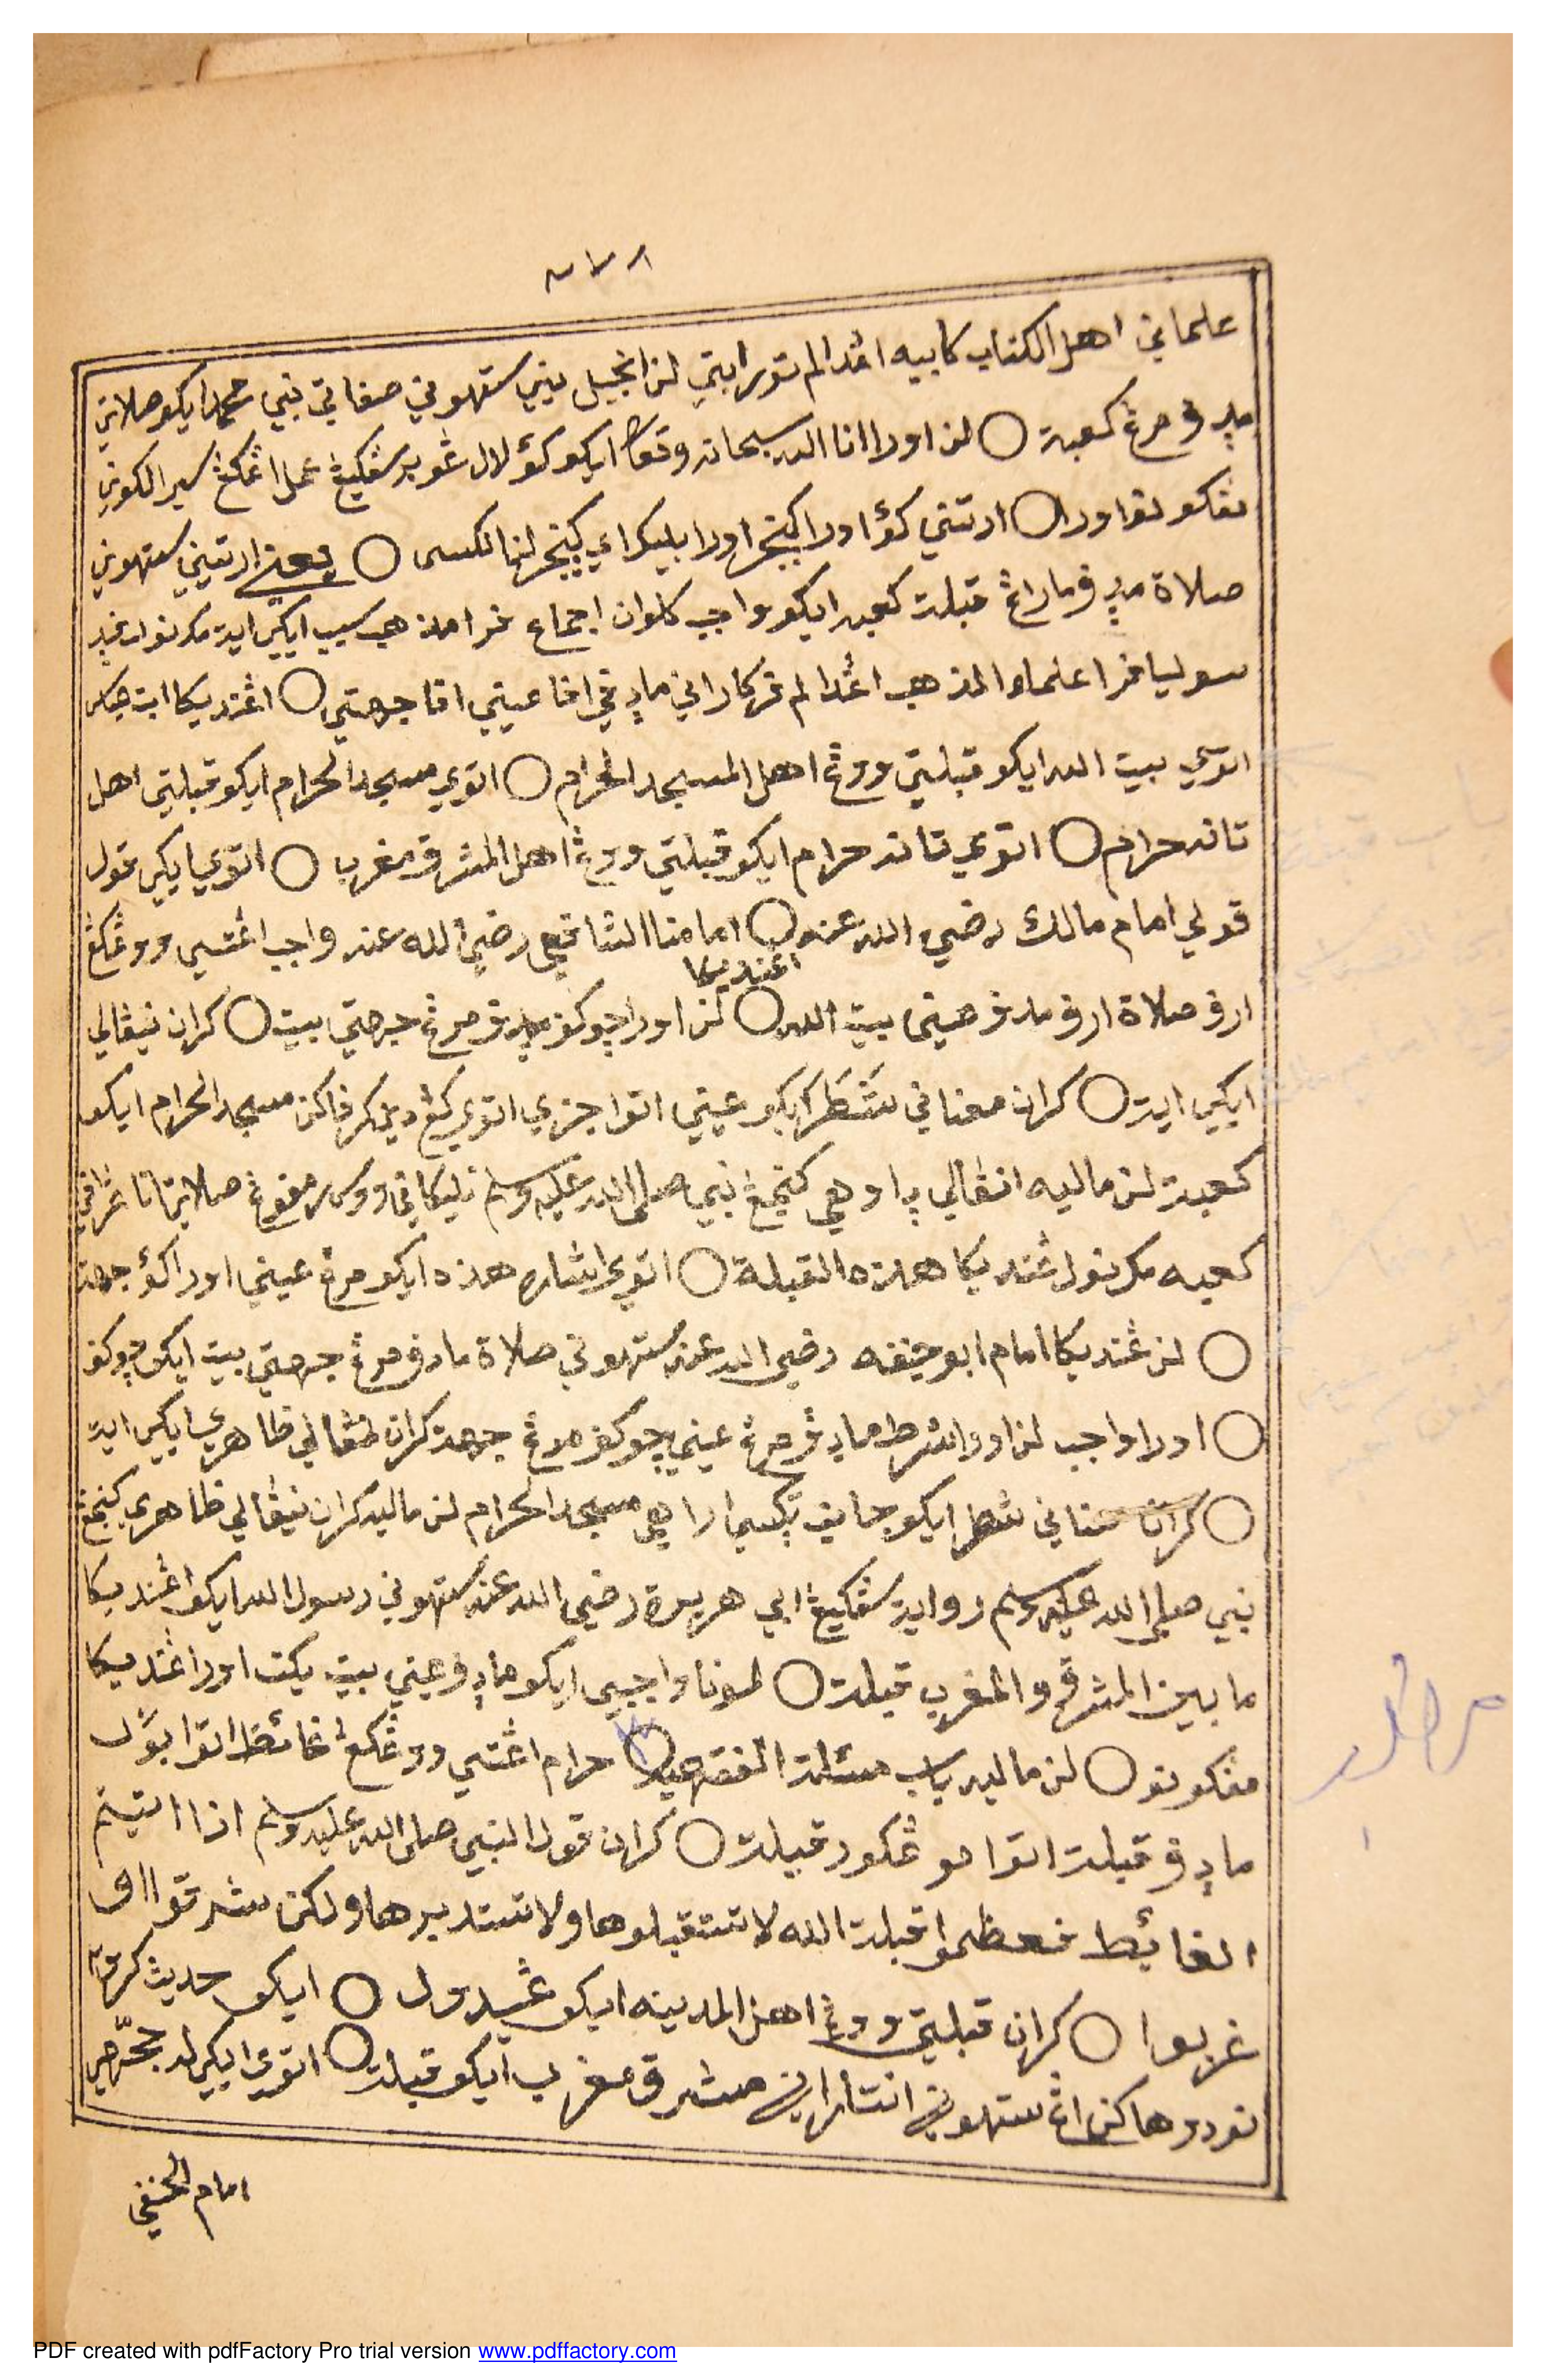 ٢٧٨
علماني اهل الكتاب كابيه اڠدالم توراتي لن انجيل يين ستهوني صفاتي نبي محمد ايكو صلاتي
مدڤ مرڠ كعبة ○ لن اورا انا الله سبحانه وتعالى ايكو كؤ لالي غوير سڠكيڠ عمل اڠكڠ سيرا لكوني
نڤكونوا ورا ○ ارتيني كؤ اورا كينجر اورا بليكراي كينجر لنا لكسى ○ يعني ارتيني ستهوني
صلاة مدڤ ماراڠ قبلة كعبه ايكو واجب كلوان اجماع فرا مذهب سبب ايكي اية مكونو
سوليا فرا علما والمذهب اڠدالم فركاراني مادڤ افا عيني افا جهتي ○ اڠنديكا ابن عباس
اتوي بيت الله ايكو قبلتي ووڠ اهل المسجد الحرام ○ اتوي مسجد الحرام ايكو قبلتي اهل
تانه حرام ○ اتوي تانه حرام ايكو قبلتي ووڠ اهل المشرق مغرب ○ اتوي ايكي قول
قولي امام مالك رضي الله عنه ○ امامنا الشافعي رضي الله عنه واجب اڠتسي ووڠكڠ
اڠنديكا
ارف صلاة ارف مدڤ عيني بيت الله ○ لن اورا چوكوف مدڤ مرڠ جهتي بيت ○ كران نيڠالي
ايكي اية ○ كران معناني شَطْرَ ايكو عيني اتوا جزي اتوي كڠ دين كرفاكن مسجد الحرام ايكو
كعبة لن ماليه انڠالي ... كنجڠ نبي صلى الله عليه وسلم تليكاني ووس رمفوڠ صلاتي انا ڠرافي
كعبه مكونو ڠنديكا هذه القبلة ○ اتوي اشاره هذه ايكو مرڠ عيني اورا كؤ جهة
○ لن ڠنديكا امام ابو حنيفه رضي الله عنه ستهوني صلاة مادڤ مرڠ جهتي بيت ايكو چوكوف
○ اورا واجب لن اورا شرط مادڤ مرڠ عيني چوكوف مرڠ جهة كران نيڠالي ظاهري ايكي اية
○ كران معناني شطر ايكو جانب تكسي اراهي مسجد الحرام لن ماليه كران نيڠالي ظاهري كنجڠ
نبي صلى الله عليه وسلم رواية سڠكيڠ ابي هريرة رضي الله عنه ستهوني رسول الله ايكو اڠنديكا
ما بين المشرق والمغرب قبلة ○ لمونا واجبي ايكو مادڤ عيني بيت يكت اورا ڠنديكا
مڤكونو ○ لن ماليه باب مسئلة الفقهيه ○ حرام اڠتسي ووڠكڠ غائط اتوا بول
مادڤ قبلة اتوا موڠكور قبلة ○ كران قول النبي صلى الله عليه وسلم اذا اتيتم
الغائط فعظموا قبلة الله لا تستقبلوها ولا تستدبرها ولكن شرقوا او
غربوا ○ كران قبلتي ووڠ اهل المدينه ايكو ڠيدول ○ ايكو حديث كرتي
نودوهاكن اڠ ستهوني انتاراني مشرق مغرب ايكو قبلة ○ اتوي ايكيله حجّهي
امام الحنفي
PDF created with pdfFactory Pro trial version www.pdffactory.com